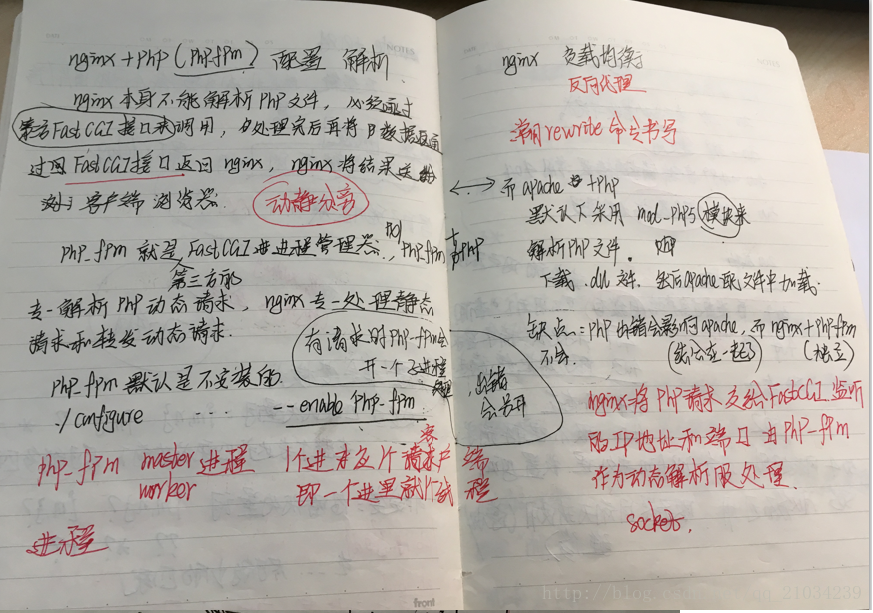 nginx + PHP (PHP-fpm) 配置 解析
nginx本身不能解析PHP文件, 必经通过
第三方FastCGI接口来调用, 处理完后再将数据返
过回FastCGI接口返回nginx, nginx将结果送给
客户端 浏览器.
动静分离
PHP_fpm 就是 FastCGI进进程管理器, PHP_fpm
第三方的
专一解析PHP动态请求, nginx专一处理静态
请求和转发动态请求.
有请求时PHP-fpm会
开一个子进程
处理
出错
PHP_fpm 默认是不安装的.
./configure ... --enable PHP-fpm
PHP-fpm master进程
worker
即一个进里就
进程
front
nginx 负载均衡
反向代理
常用rewrite命令书写
而apache +PHP
默认下采用 mod-PHP5模块来
解析PHP文件.
下载.dll文件. 然后apache配文件中加载.
缺点: PHP出错会影响apache, 而nginx+PHP-fpm
不会. (结合在一起了) (独立)
nginx将PHP请求交给FastCGI监听
的IP地址和端口 由PHP-fpm
作为动态解析服处理.
socket.